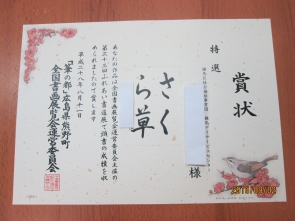 賞状
特選
様
さくら草
あなたの作品は全国書画展覧会運営委員会主催の
第三十三回ふれあい書道展で頭書の成績を収
められましたので賞します
平成二十八年八月十一日
「筆の都」広島県熊野町
全国書画展覧会運営委員会